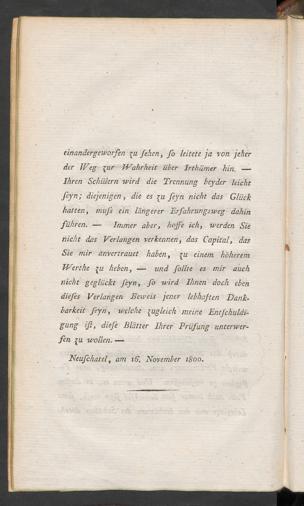 einandergeworfen zu ſehen, ſo leitete ja von jeher
der Weg zur Wahrheit über Irthümer hin. —
Ihren Schülern wird die Trennung beyder leicht
ſeyn; diejenigen, die es zu ſeyn nicht das Glück
hatten, muſs ein längerer Erfahrungsweg dahin
führen. — Immer aber, hoffe ich, werden Sie
nicht das Verlangen verkennen, das Capital, das
Sie mir anvertrauet haben, zu einem höherem
Werthe zu heben, — und ſollte es mir auch
nicht geglückt ſeyn, ſo wird Ihnen doch eben
dieſes Verlangen Beweis jener lebhaften Dank-
barkeit ſeyn, welche zugleich meine Entſchuldi-
gung iſt, dieſe Blätter Ihrer Prüfung unterwer-
fen zu wollen. —
Neufchatel, am 16. November 1800.